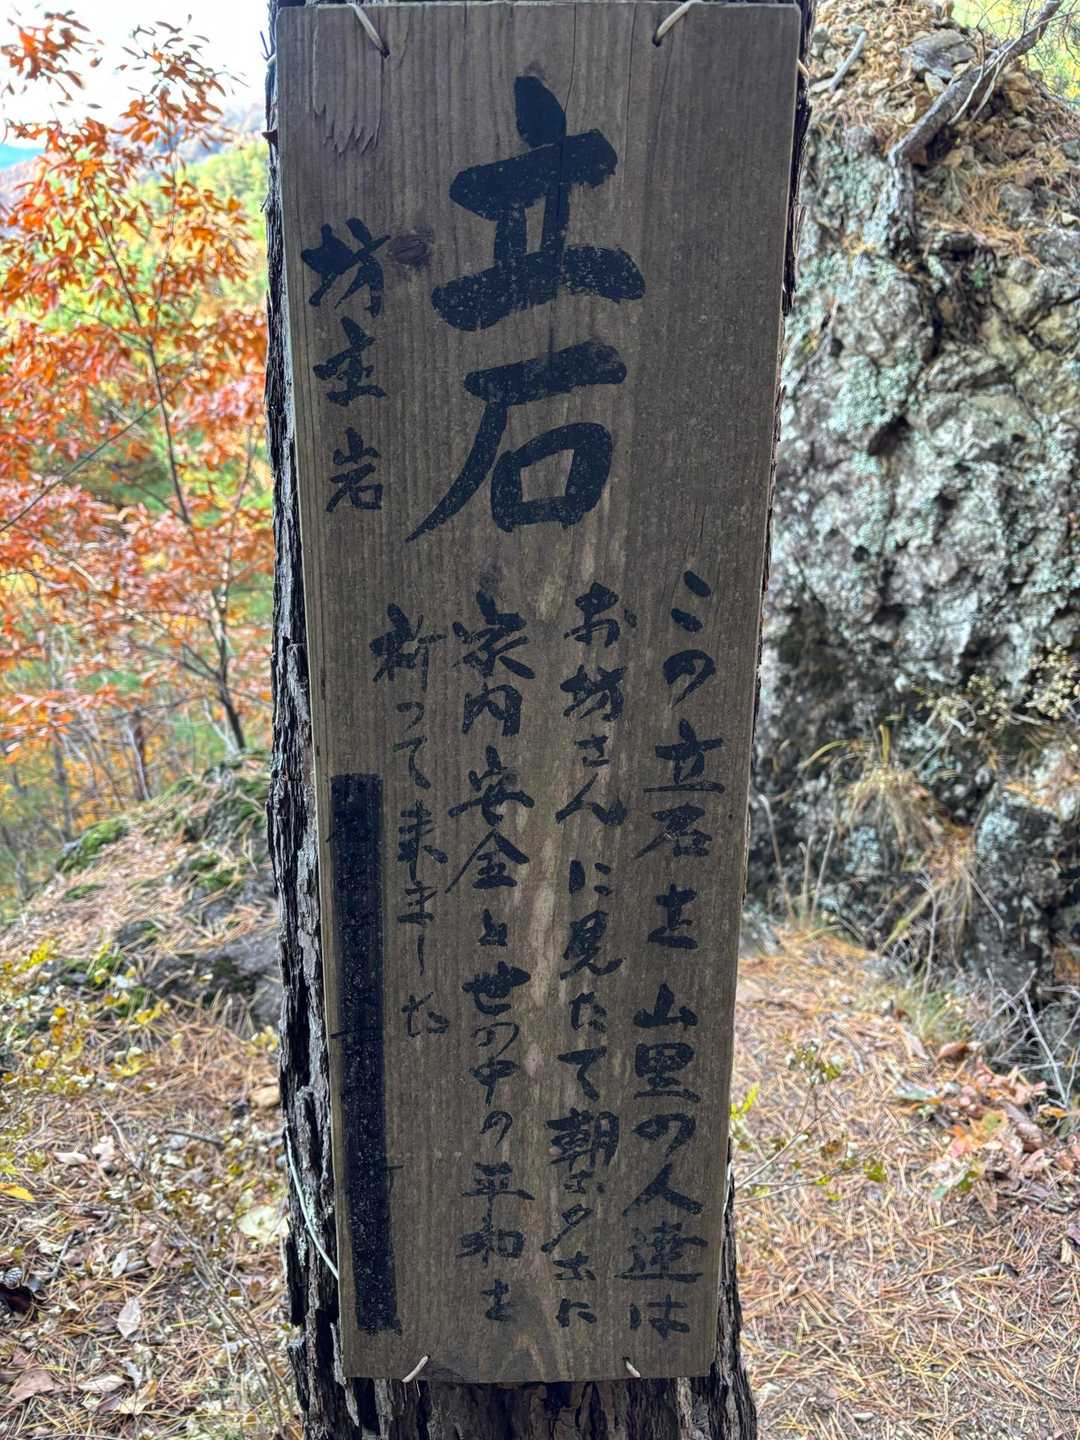 立石
坊主岩
この立石を山里の人達は
お坊さんに見たてて朝な夕なに
家内安全と世の中の平和を
祈って来ました